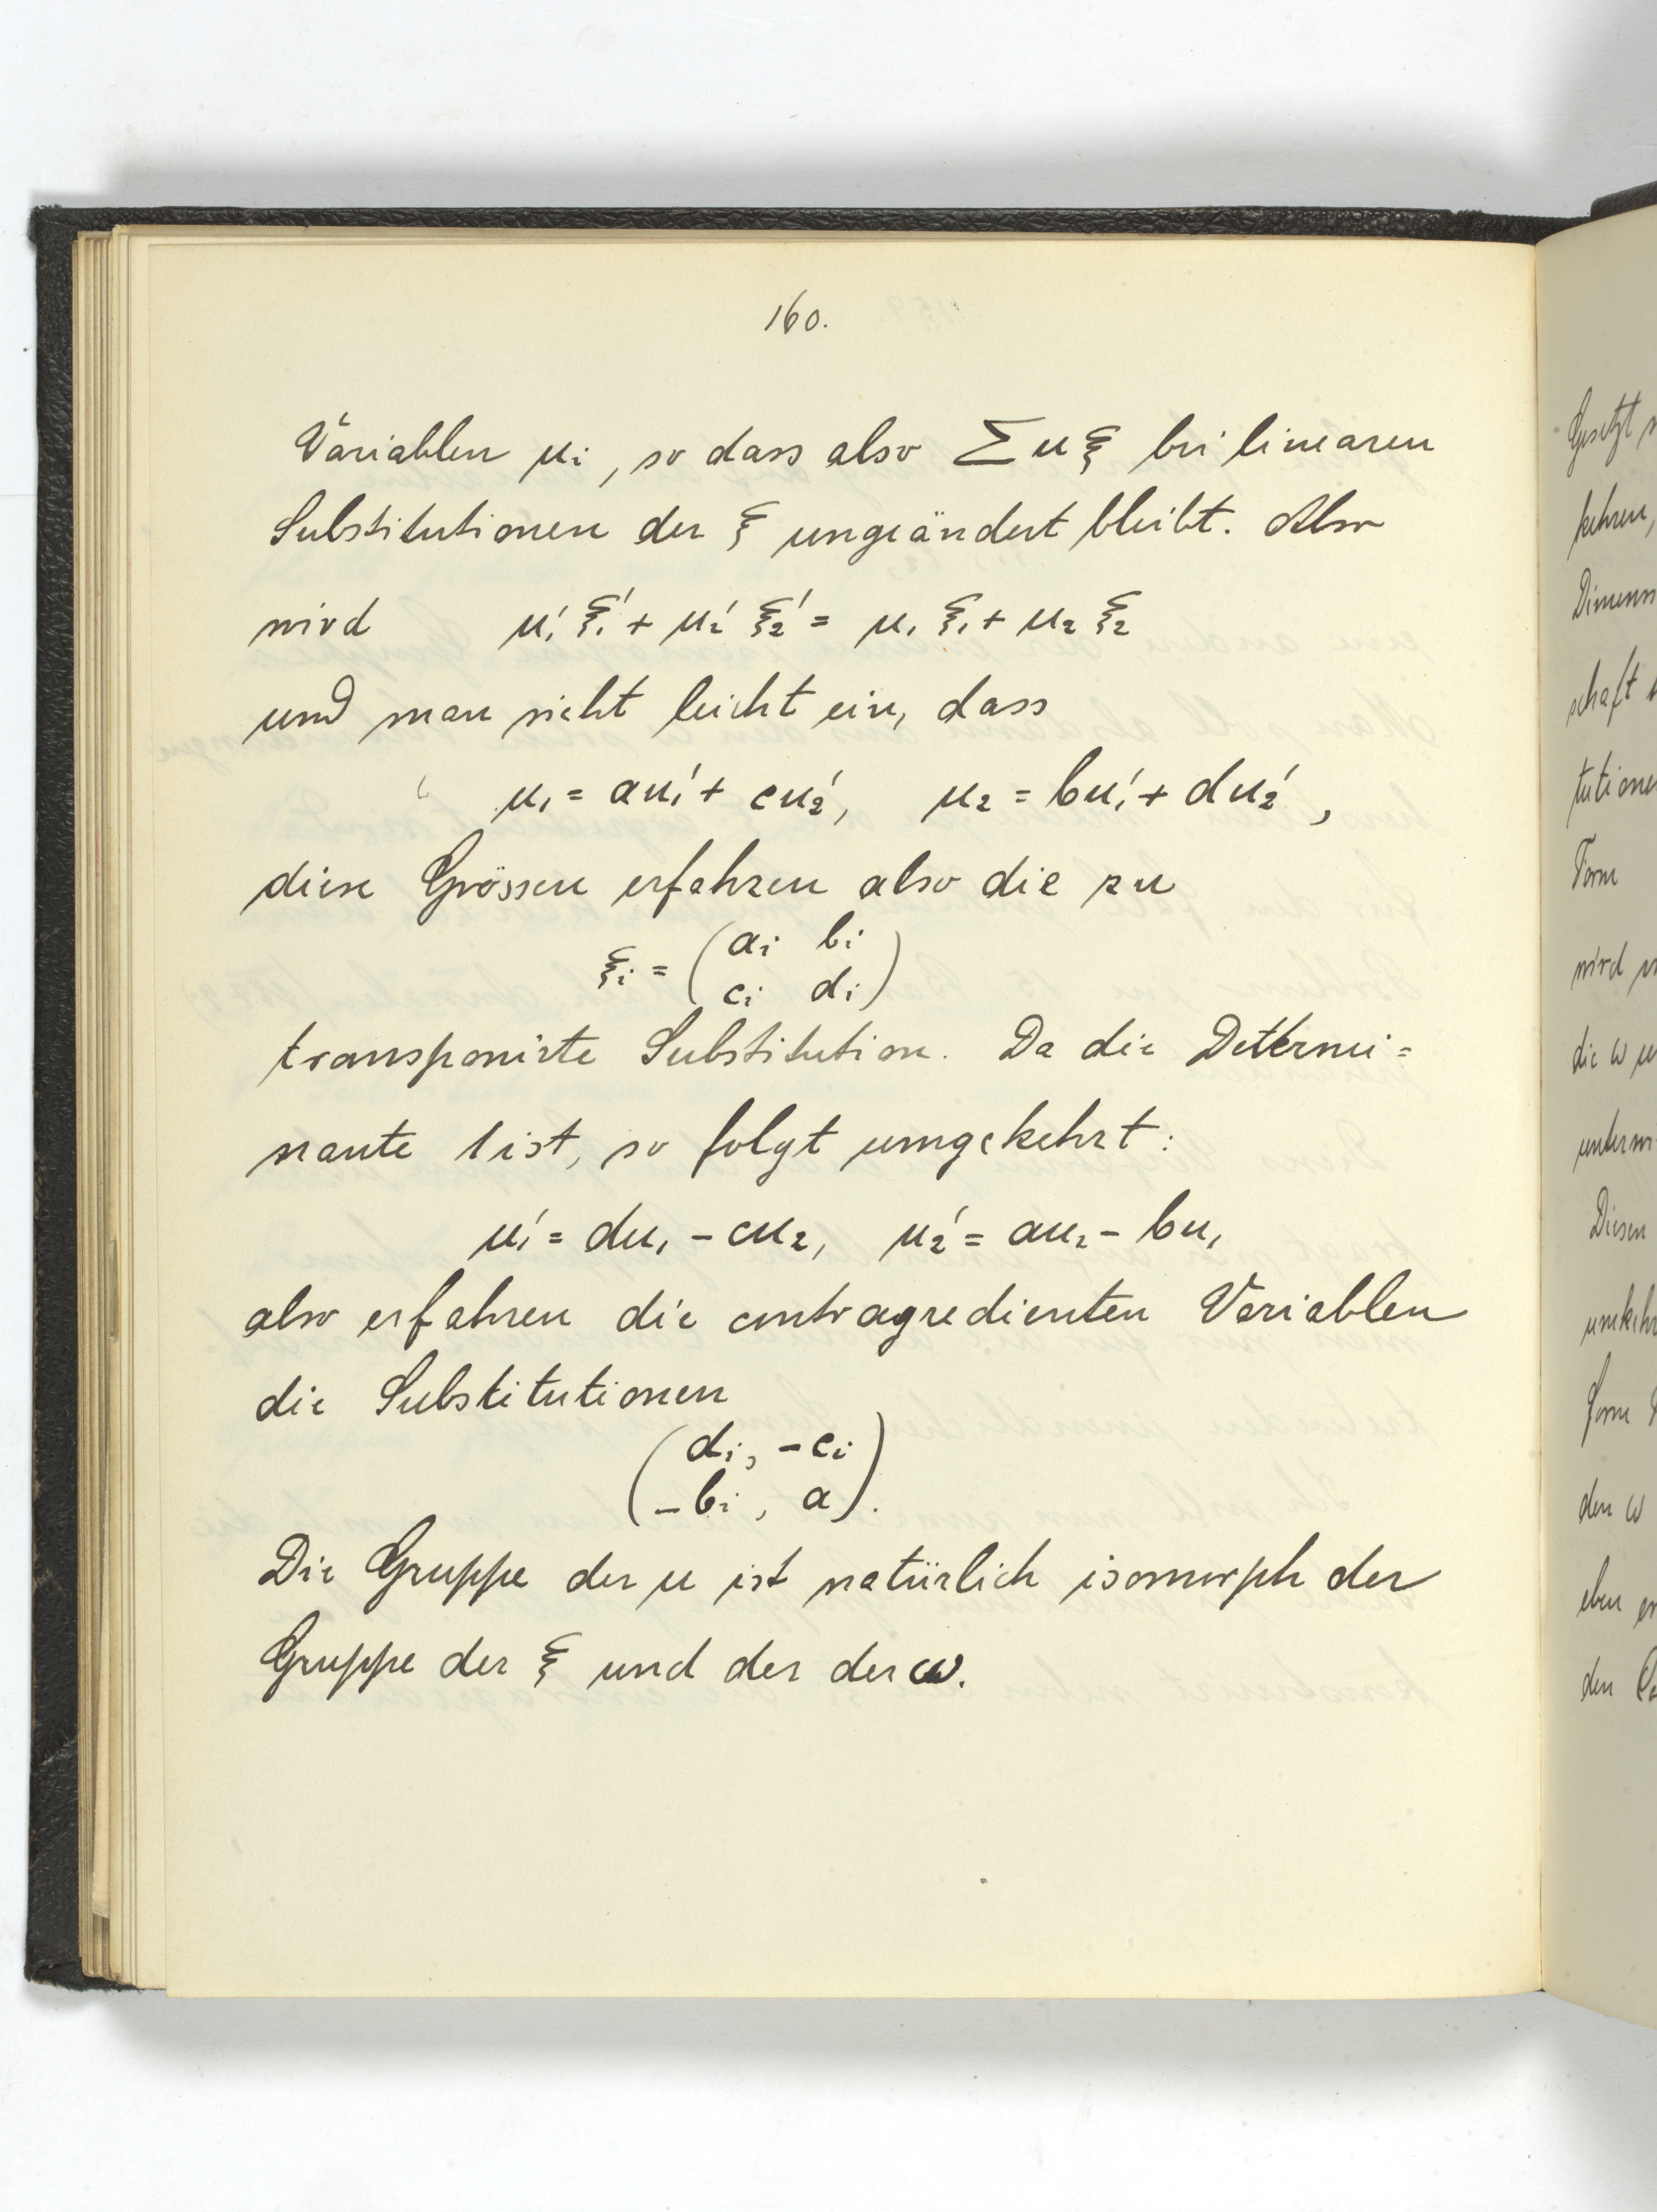 160.
Variablen u_i, so dass also Σ u ξ bei linearen
Substitutionen der ξ ungeändert bleibt. Also
wird u₁' ξ₁' + u₂' ξ₂' = u₁ ξ₁ + u₂ ξ₂
und man sieht leicht ein, dass
u₁ = au₁' + cu₂', u₂ = bu₁' + du₂',
diese Grössen erfahren also die zu
ξ_i = (a_i b_i
c_i d_i)
transponirte Substitution. Da die Determi=
nante 1 ist, so folgt umgekehrt:
u₁' = du₁ - cu₂, u₂' = au₂ - bu₁
also erfahren die contragredienten Variablen
die Substitutionen
(d_i, -c_i
-b_i, a).
Die Gruppe der u ist natürlich isomorph der
Gruppe der ξ und der der ω.
Gesetzt
kehren,
Dimens
schaft
tutione
Form
wird
die ω
Diesen
umkehr
form
den ω
eben
den